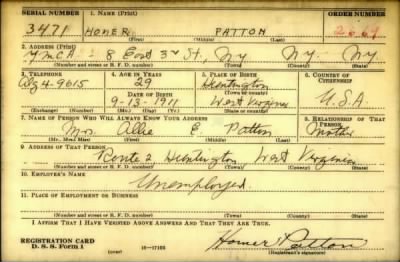 SERIAL NUMBER 1. NAME (Print) ORDER NUMBER
3471 HOMER PATTON
(First) (Middle) (Last)
2. ADDRESS (Print)
YMCA - 8 East 3rd St, Ny Ny Ny
(Number and street or R. F. D. number) (Town) (County) (State)
3. TELEPHONE 4. AGE IN YEARS 5. PLACE OF BIRTH 6. COUNTRY OF CITIZENSHIP
4-9615 29 Huntington
(Town or county)
DATE OF BIRTH
9-13-1911 West Virginia U.S.A
(Exchange) (Number) (Mo.) (Day) (Yr.) (State or country)
7. NAME OF PERSON WHO WILL ALWAYS KNOW YOUR ADDRESS 8. RELATIONSHIP OF THAT PERSON
Mrs. Allie E. Patton Mother
(Mr., Mrs., Miss) (First) (Middle) (Last)
9. ADDRESS OF THAT PERSON
Route 2 Huntington West Virginia
(Number and street or R. F. D. number) (Town) (County) (State)
10. EMPLOYER'S NAME
Unemployed.
11. PLACE OF EMPLOYMENT OR BUSINESS
(Number and street or R. F. D. number) (Town) (County) (State)
I AFFIRM THAT I HAVE VERIFIED ABOVE ANSWERS AND THAT THEY ARE TRUE.
REGISTRATION CARD
D. S. S. Form 1 (over) 16-17105 Homer Patton
(Registrant's signature)